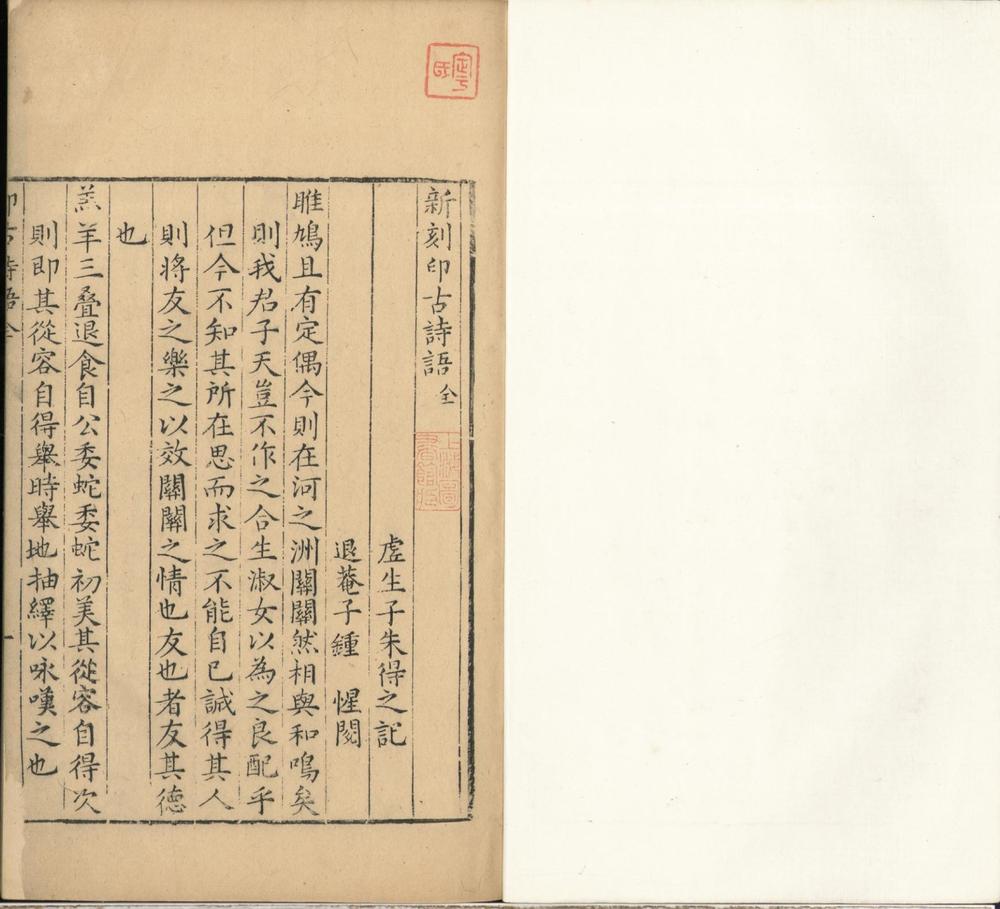 新刻印古詩語全
虗生子朱得之記
退菴子鍾惺閱
雎鳩且有定偶今則在河之洲關關然相與和鳴矣
則我君子天豈不作之合生淑女以為之良配乎
但今不知其所在思而求之不能自已誠得其人
則將友之樂之以效關關之情也友也者友其德
也
羔羊三疊退食自公委蛇委蛇初美其從容自得次
則即其從容自得舉時舉地抽繹以咏嘆之也
印古詩語全
一
上海圖書館藏